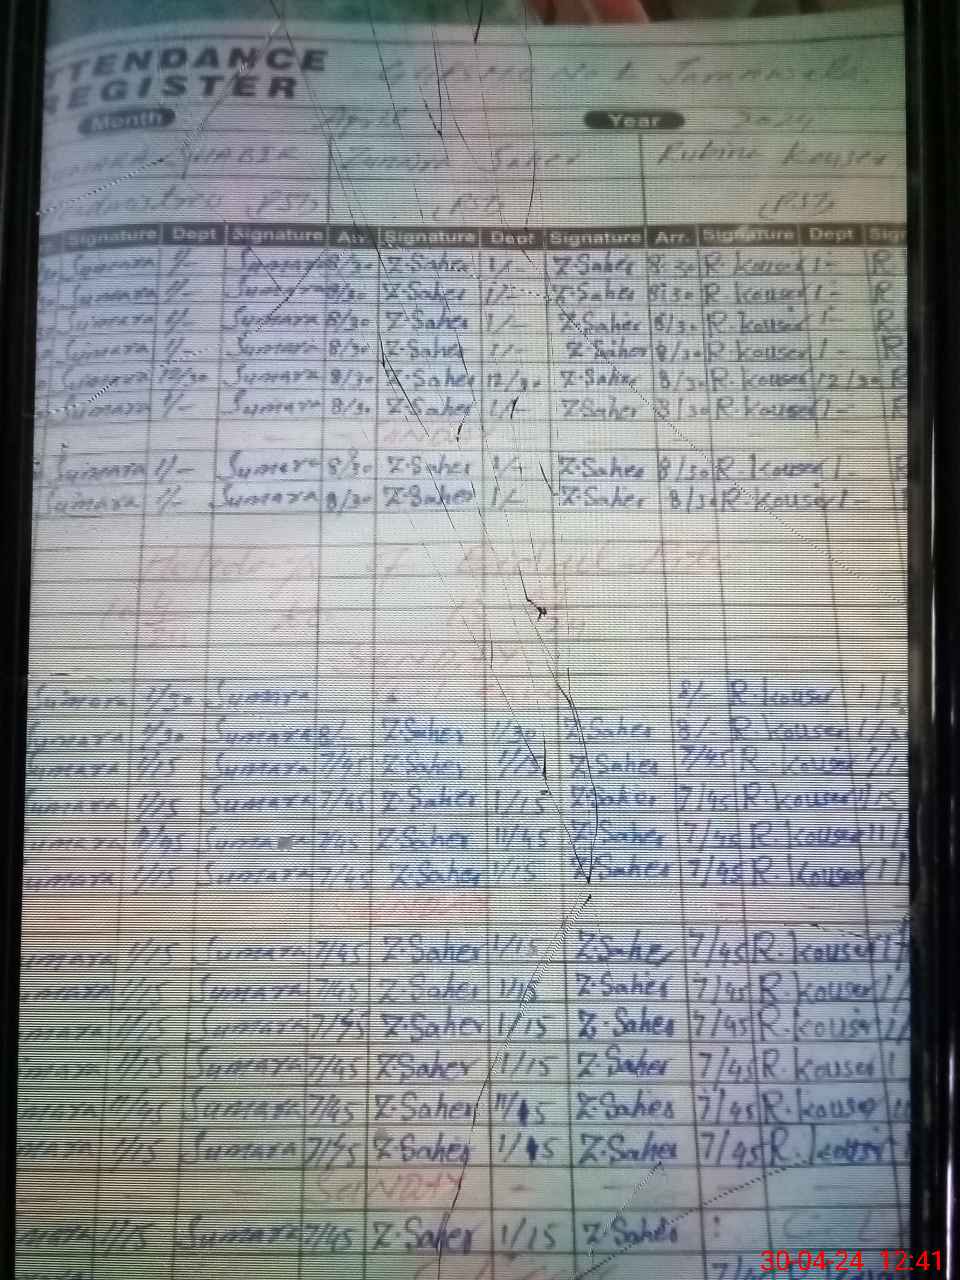 TTENDANCE
EGISTER
Month April Year 2024
Saher Rubina Kouser
(PST) (PST) (PST)
Signature Dept Signature Arr. Signature Dept Signature Arr. Signature Dept Sig
Sumara 1/- Sumara 8/30 Z.Saher 1/- Z.Saher 8.30 R.kouser 1- R
Sumara 1/- Sumara 8/30 Z.Saher 1/- Z.Saher 8:30 R.kouser 1- R
Sumara 1/- Sumara 8/30 Z.Saher 1/- Z.Saher 8/30 R.kouser 1- R
Sumara 1/- Sumara 8/30 Z.Saher 1/- Z.Saher 8/30 R.kouser 1- R
Sumara 12/30 Sumara 8/30 Z.Saher 12/30 Z.Saher 8/30 R.kouser 12/30 R
Sumara 1/- Sumara 8/30 Z.Saher 1/- Z.Saher 8/30 R.kouser 1- R
Sumara 1/- Sumara 8/30 Z.Saher 1/- Z.Saher 8/30 R.kouser 1-
Sumara 1/- Sumara 8/30 Z.Saher 1/- Z.Saher 8/30 R.kouser 1-
SUNDAY
Sumara 1/30 Sumara 8/- R.kouser 1/3
umara 1/30 Sumara 8/- Z.Saher 1/30 Z.Saher 8/- R.kouser 1/3
umara 1/15 Sumara 7/45 Z.Saher 1/15 Z.Saher 7/45 R.kouser 1/1
umara 1/15 Sumara 7/45 Z.Saher 1/15 Z.Saher 7/45 R.kouser 1/15
umara 11/45 Sumara 7/45 Z.Saher 11/45 Z.Saher 7/45 R.kouser 11/
umara 1/15 Sumara 7/45 Z.Saher 1/15 Z.Saher 7/45 R.kouser 1/
SUNDAY
mara 1/15 Sumara 7/45 Z.Saher 1/15 Z.Saher 7/45 R.kouser 1/
mara 1/15 Sumara 7/45 Z.Saher 1/15 Z.Saher 7/45 R.kouser 1/
mara 1/15 Sumara 7/45 Z.Saher 1/15 Z.Saher 7/45 R.kouser 1/
mara 1/15 Sumara 7/45 Z.Saher 1/15 Z.Saher 7/45 R.kouser 1
mara 11/45 Sumara 7/45 Z.Saher 11/45 Z.Saher 7/45 R.kouser 11
mara 1/15 Sumara 7/45 Z.Saher 1/15 Z.Saher 7/45 R.kouser
SUNDAY
mara 1/15 Sumara 7/45 Z.Saher 1/15 Z.Saher
30-04-24 12:41